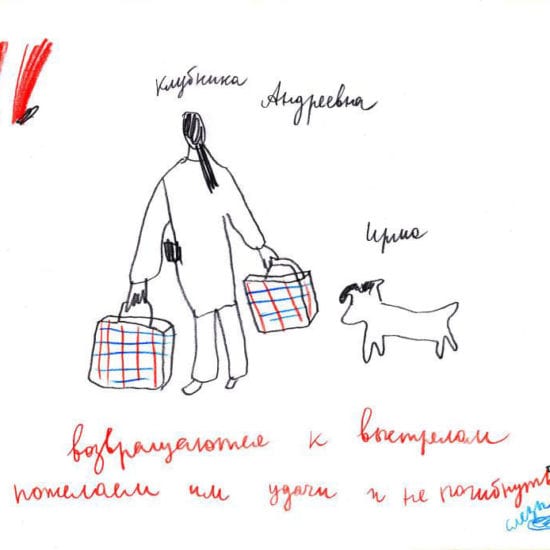 клубника
Андреевна
Ирма
возвращаются к выстрелам
пожелаем им удачи и не погибнуть
слезы